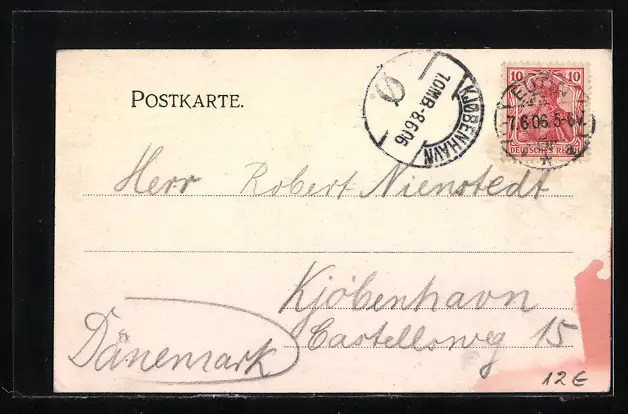 POSTKARTE.
KJØBENHAVN
1.OMB-8.6.06
Ø
10 10
DEUTSCHES REICH
EUTIN
-7.6.06.5-6V.
Herr Robert Nienstedt
Kjöbenhavn
Castellsweg 15
Dänemark
12€